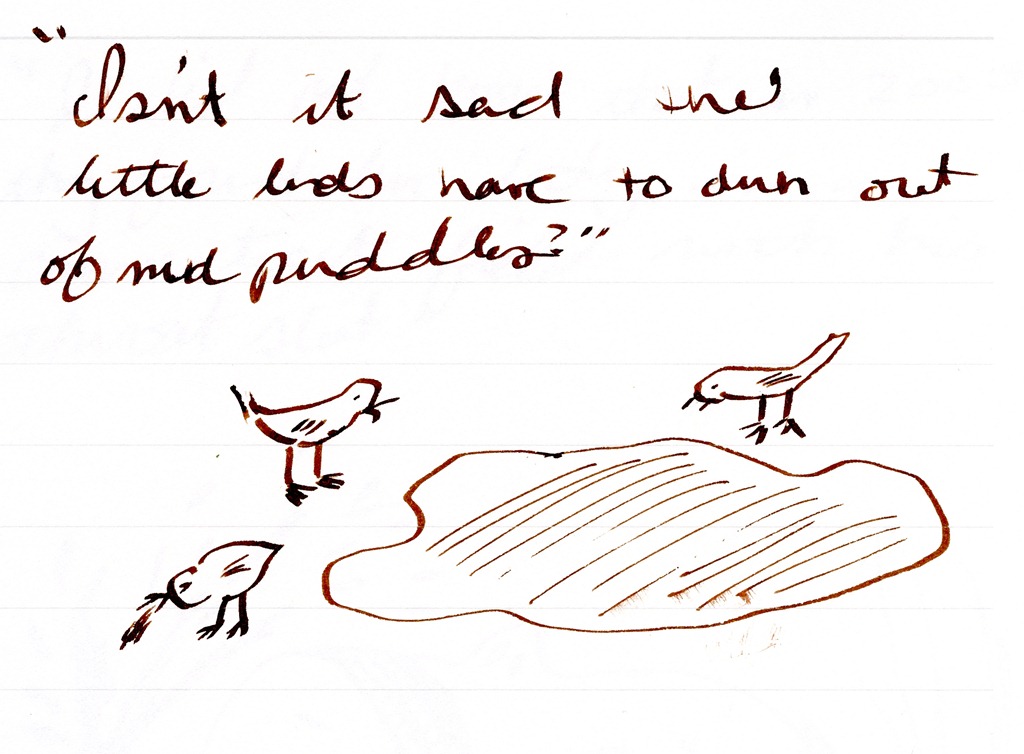 "Isn't it sad the
little birds have to drink out
of mud puddles?"